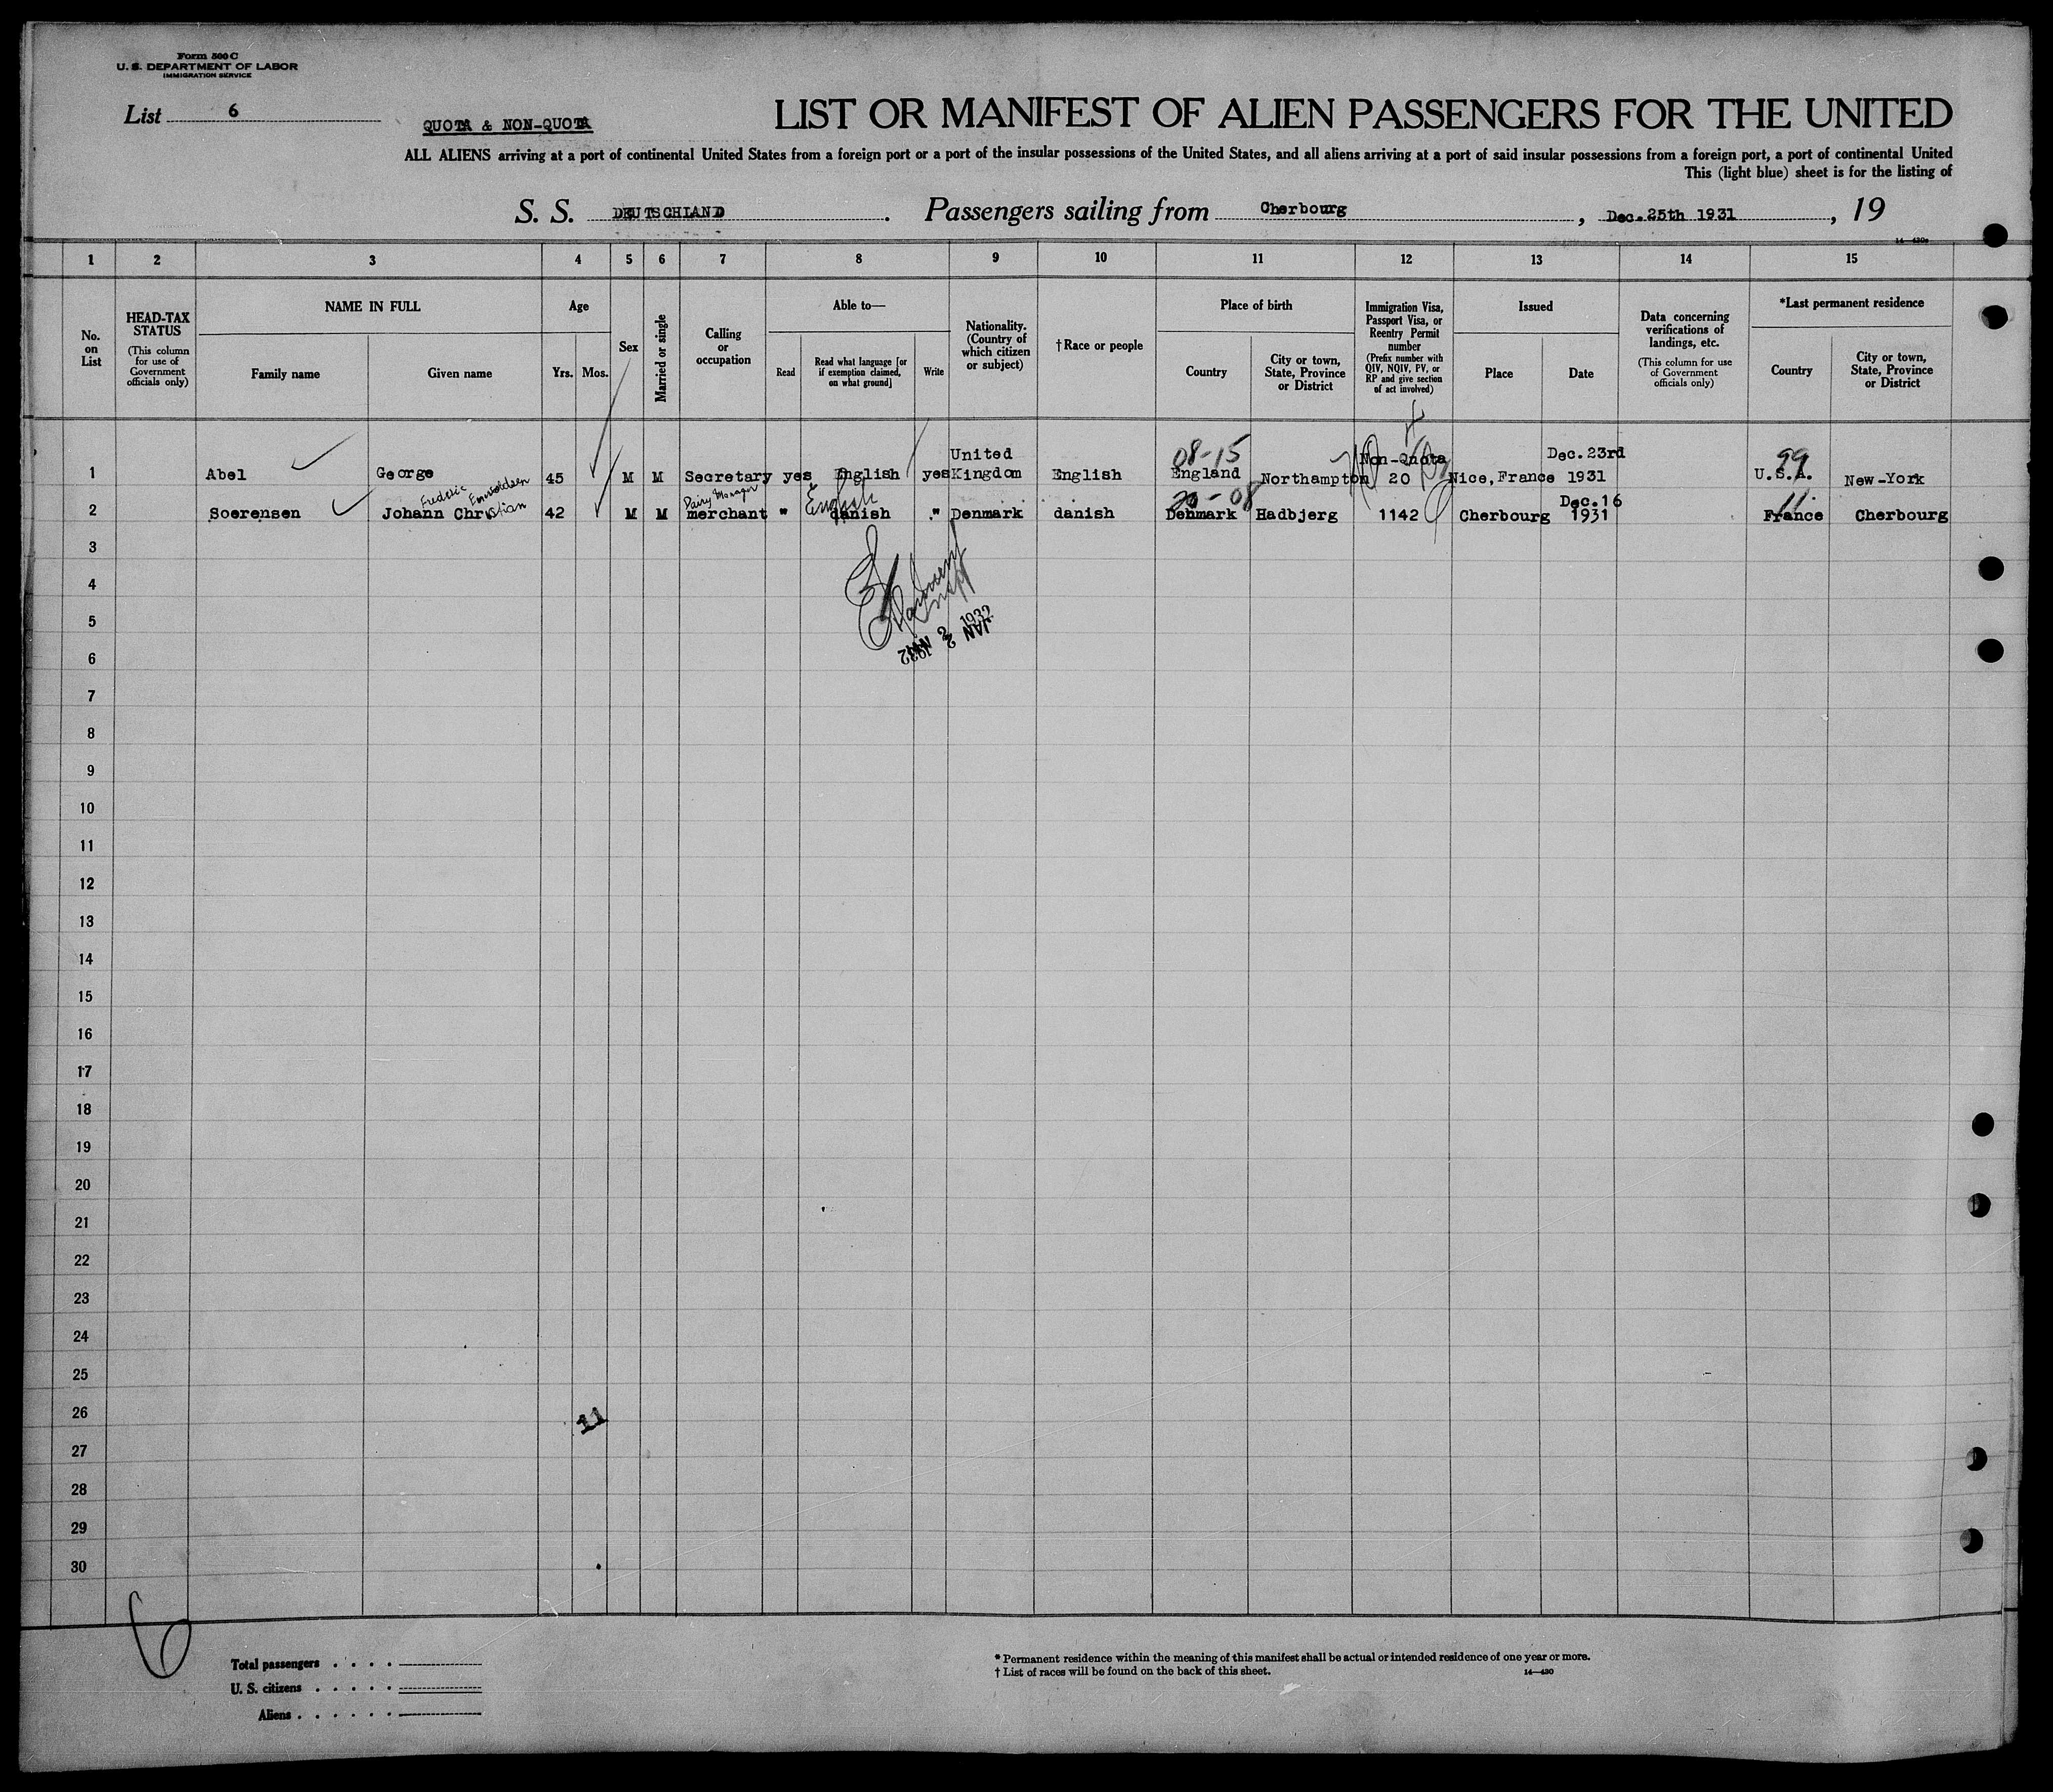 Form 500 C
U. S. DEPARTMENT OF LABOR
IMMIGRATION SERVICE
List 6
QUOTA & NON-QUOTA
LIST OR MANIFEST OF ALIEN PASSENGERS FOR THE UNITED
ALL ALIENS arriving at a port of continental United States from a foreign port or a port of the insular possessions of the United States, and all aliens arriving at a port of said insular possessions from a foreign port, a port of continental United
This (light blue) sheet is for the listing of
S. S. DEUTSCHLAND. Passengers sailing from Cherbourg, Dec. 25th 1931, 19
1 2 3 4 5 6 7 8 9 10 11 12 13 14 15
No. on List
HEAD-TAX STATUS (This column for use of Government officials only)
NAME IN FULL
Family name
Given name
Age
Yrs. Mos.
Sex
Married or single
Calling or occupation
Able to—
Read
Read what language [or if exemption claimed, on what ground]
Write
Nationality. (Country of which citizen or subject)
†Race or people
Place of birth
Country
City or town, State, Province or District
Immigration Visa, Passport Visa, or Reentry Permit number (Prefix number with QIV, NQIV, PV, or RP and give section of act involved)
Issued
Place
Date
Data concerning verifications of landings, etc. (This column for use of Government officials only)
*Last permanent residence
Country
City or town, State, Province or District
08-15
99
1 Abel George 45 M M Secretary yes English yes United Kingdom English England Northampton Non-Quota 20 Nice, France Dec. 23rd 1931 U.S.A. New-York
Frederic
Dairy Manager
English
20-08
11
2 Soerensen Johann Christian 42 M M merchant " danish " Denmark danish Denmark Hadbjerg 1142 Cherbourg Dec. 16 1931 France Cherbourg
3
4
5
JAN 2 1932
6
7
8
9
10
11
12
13
14
15
16
17
18
19
20
21
22
23
24
25
26
11
27
28
29
30
6
Total passengers
U. S. citizens
Aliens
* Permanent residence within the meaning of this manifest shall be actual or intended residence of one year or more.
† List of races will be found on the back of this sheet. 14—430